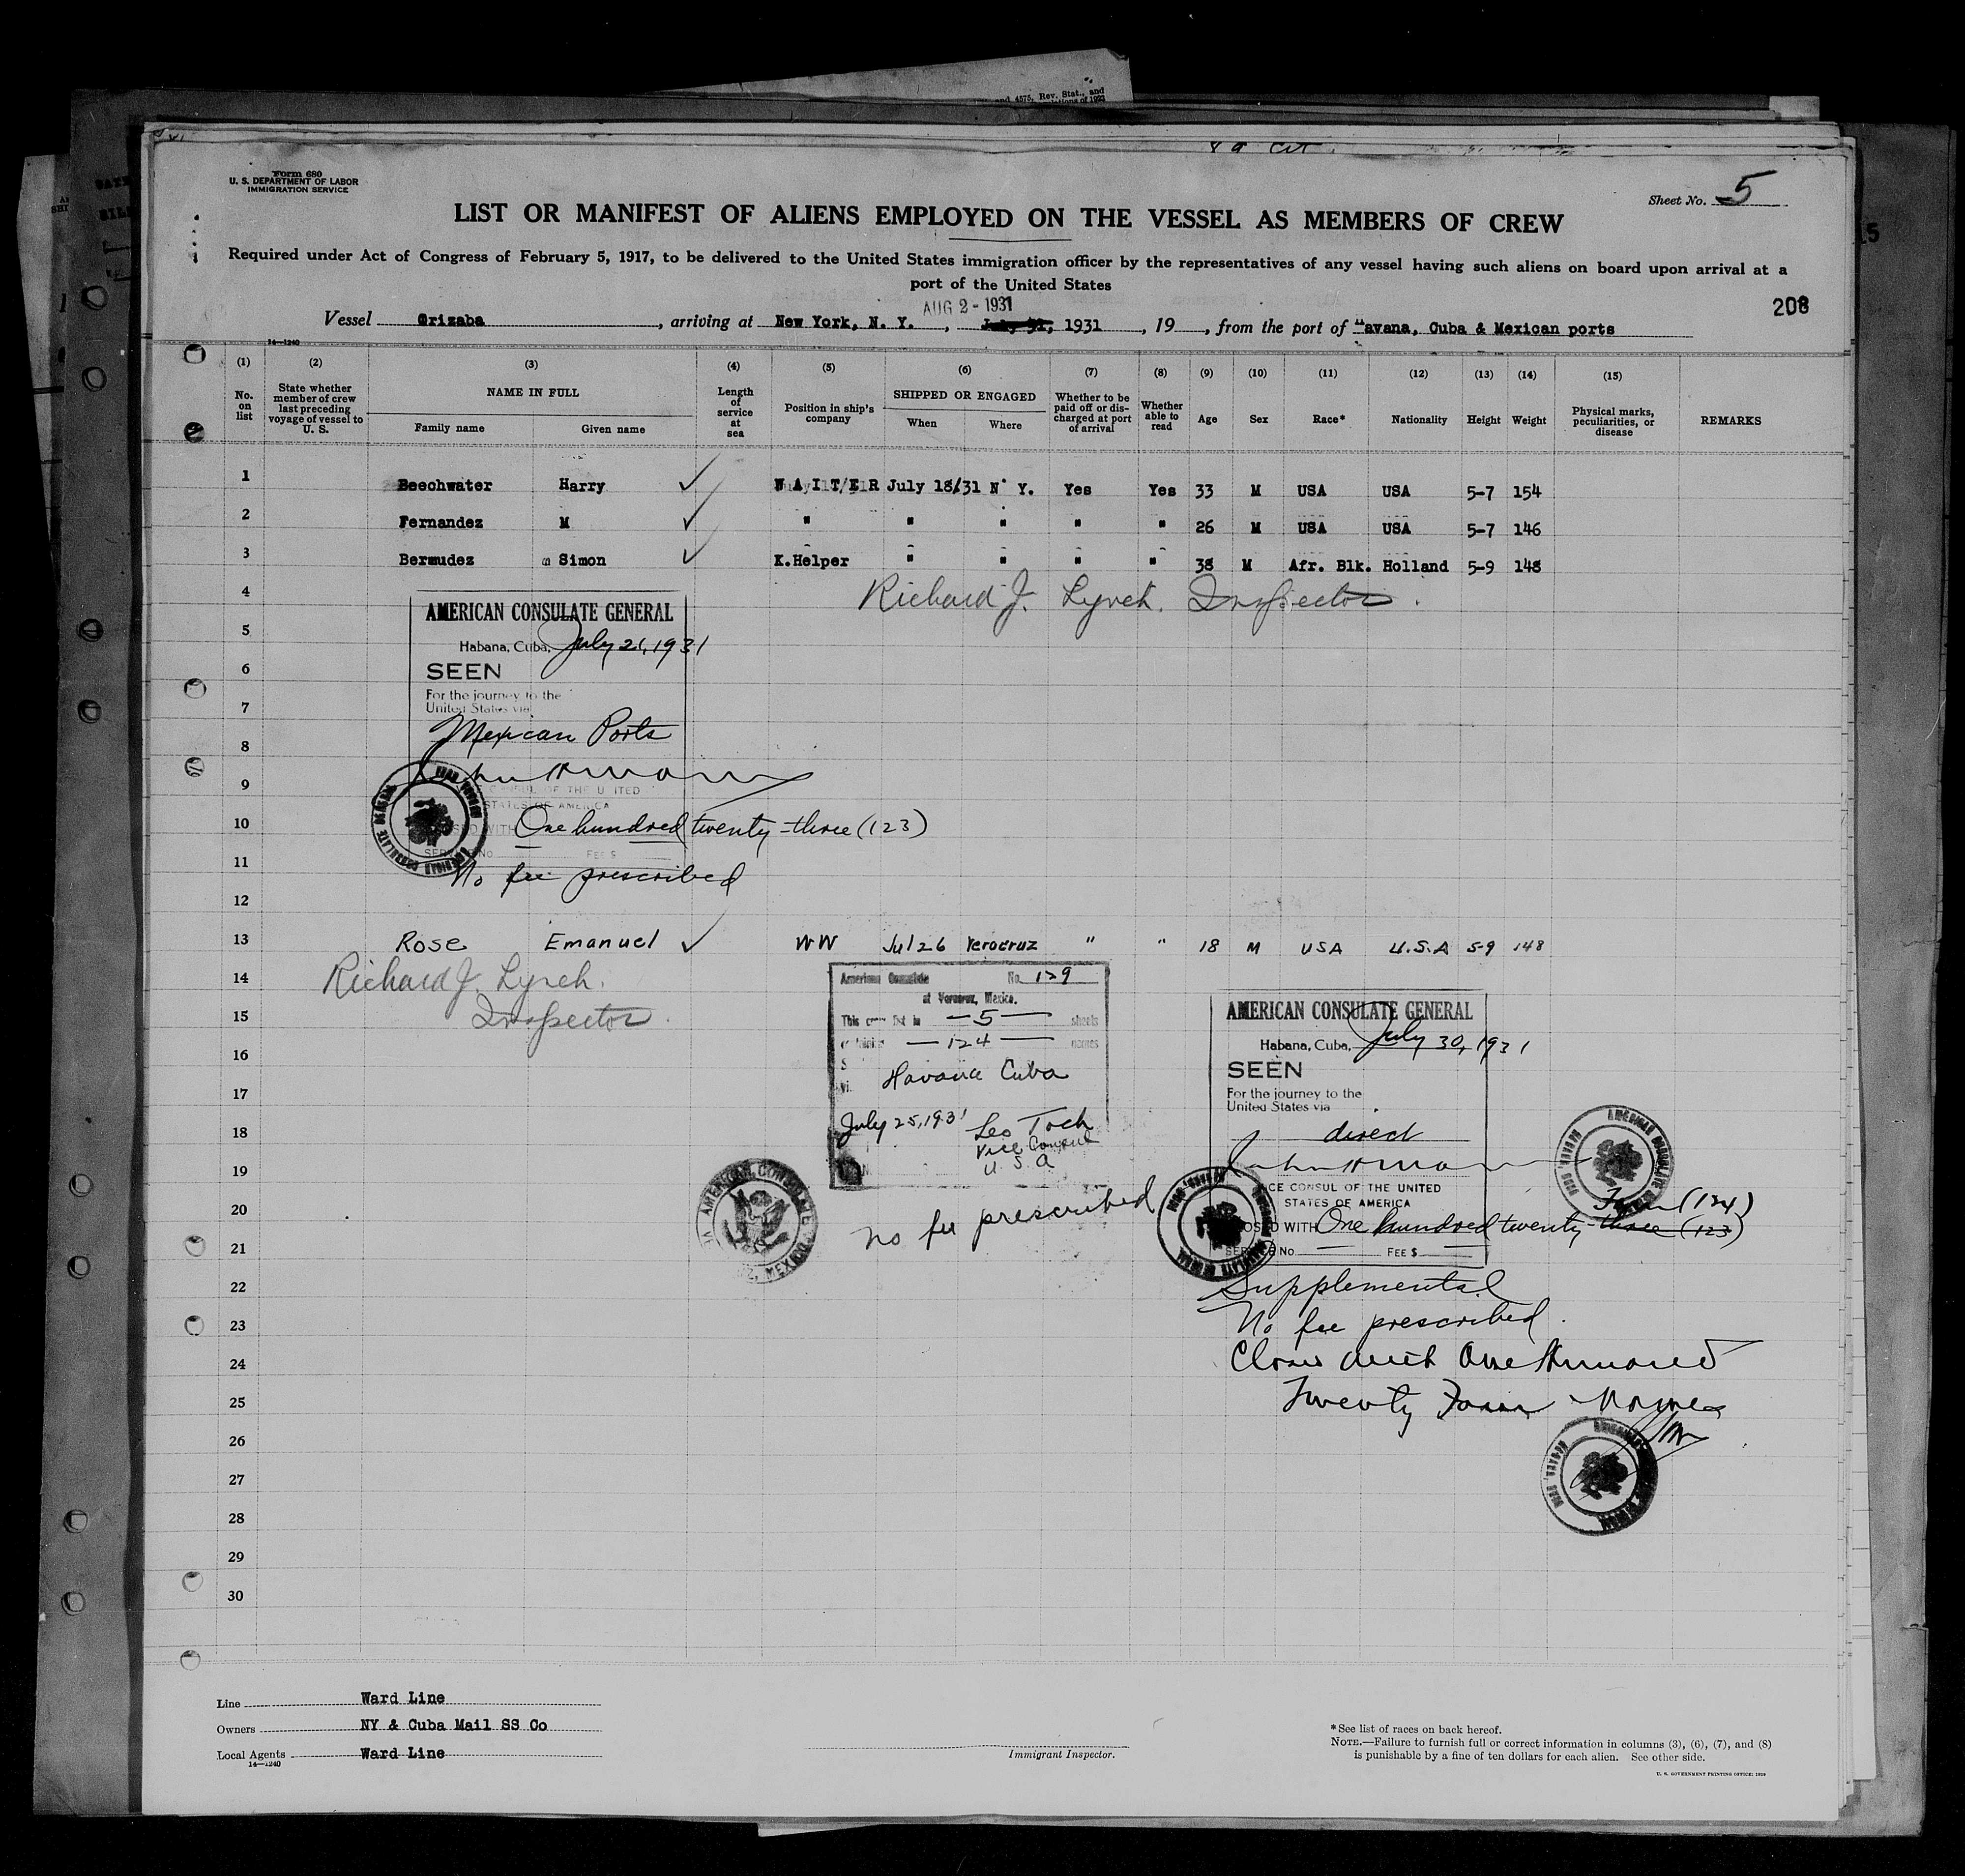 and 4575, Rev. Stat., and
Form 680
U. S. DEPARTMENT OF LABOR
IMMIGRATION SERVICE
Sheet No. 5
LIST OR MANIFEST OF ALIENS EMPLOYED ON THE VESSEL AS MEMBERS OF CREW
Required under Act of Congress of February 5, 1917, to be delivered to the United States immigration officer by the representatives of any vessel having such aliens on board upon arrival at a
port of the United States
AUG 2 - 1931
208
Vessel Orizaba, arriving at New York, N. Y., July 31, 1931, 19, from the port of "avana, Cuba & Mexican ports
14—1240
(1) (2) (3) (4) (5) (6) (7) (8) (9) (10) (11) (12) (13) (14) (15)
No. on list
State whether member of crew last preceding voyage of vessel to U. S.
NAME IN FULL
Family name Given name
Length of service at sea
Position in ship's company
SHIPPED OR ENGAGED
When Where
Whether to be paid off or discharged at port of arrival
Whether able to read
Age Sex Race* Nationality Height Weight
Physical marks, peculiarities, or disease
REMARKS
1 Beechwater Harry ✓ WAITER July 18/31 N Y. Yes Yes 33 M USA USA 5-7 154
2 Fernandez M ✓ " " " " " 26 M USA USA 5-7 146
3 Bermudez Simon ✓ K.Helper " " " " 38 M Afr. Blk. Holland 5-9 148
4 Richard J. Lynch. Inspector.
AMERICAN CONSULATE GENERAL
5
Habana, Cuba, July 21, 1931
6 SEEN
For the journey to the
7 United States via
Mexican Ports
8
9
CONSUL OF THE UNITED
STATES OF AMERICA
10 One hundred twenty-three (123)
11 Fee $
No fee prescribed
12
13 Rose Emanuel ✓ WW Jul 26 Veracruz " " 18 M USA U.S.A 5-9 148
14 Richard J. Lynch.
15 Inspector.
American Consulate No. 129
at Veracruz, Mexico.
This crew list in — 5 — sheets
containing — 124 — names
Havana Cuba
July 25, 1931 Leo Toch
Vice Consul
U S A
AMERICAN CONSULATE
MEXICO
no fee prescribed
AMERICAN CONSULATE GENERAL
Habana, Cuba, July 30, 1931
16 SEEN
17 For the journey to the
United States via
18 direct
19
VICE CONSUL OF THE UNITED
STATES OF AMERICA
20 Four (124)
CLOSED WITH One hundred twenty-three (123)
21 SERVICE No. FEE $
22 Supplemental
23 No fee prescribed.
24 Closes with One Hundred
25 Twenty Four Names
26
27
28
29
30
Line Ward Line
Owners NY & Cuba Mail SS Co
Local Agents Ward Line
14—1240
Immigrant Inspector.
*See list of races on back hereof.
NOTE.—Failure to furnish full or correct information in columns (3), (6), (7), and (8)
is punishable by a fine of ten dollars for each alien. See other side.
U. S. GOVERNMENT PRINTING OFFICE: 1929